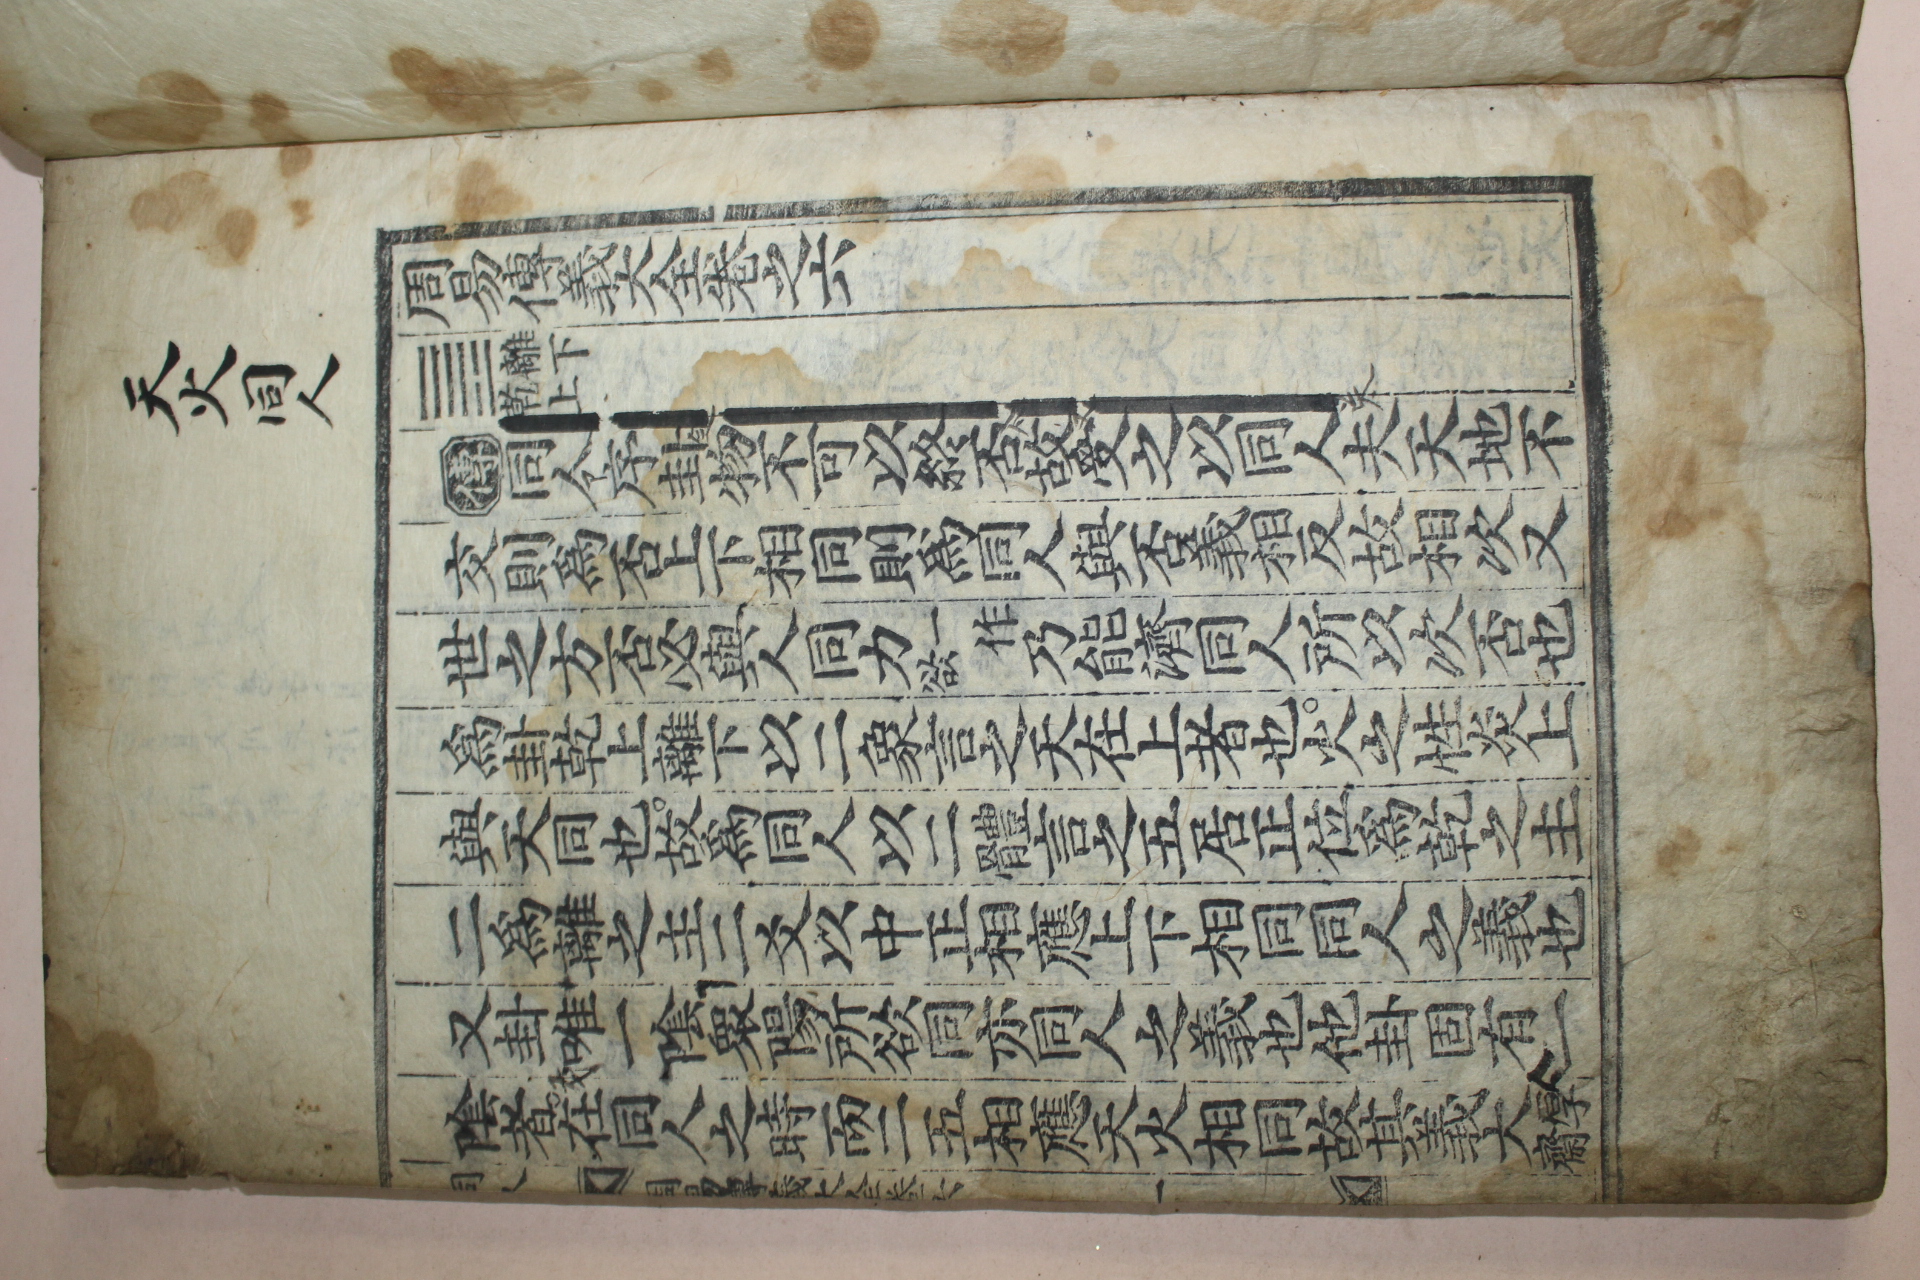 天火同人
周易傳義大全卷之六
離下
乾上
傳同人序卦物不可以終否故受之以同人夫天地不
交則爲否上下相同則爲同人與否義相反故相次又
世之方否必與人同力一作欲乃能濟同人所以次否也
爲卦乾上離下以二象言之天在上者也火之性炎上
與天同也故爲同人以二體言之五居正位爲乾之主
二爲離之主二爻以中正相應上下相同同人之義也
又卦唯一陰衆陽所欲同亦同人之義也他卦固有一
陰者在同人之時而二五相應天火相同故其義大